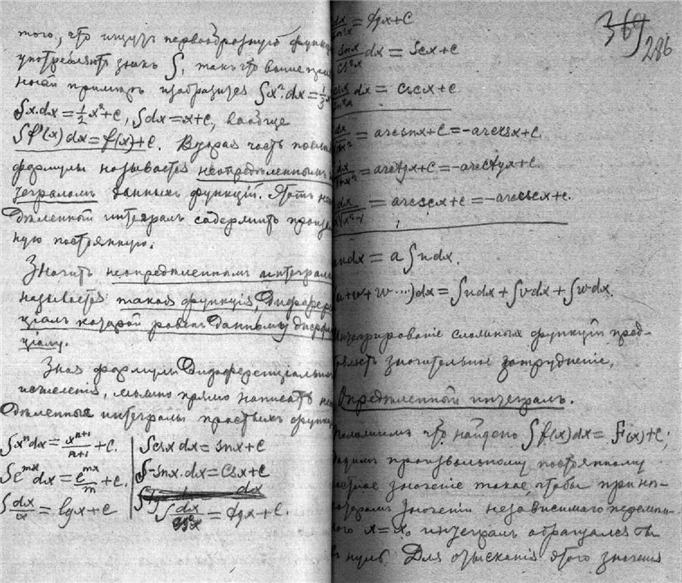 того, что ищутъ первообразную функц
употребляютъ знакъ ∫, такъ что выше
ный примѣръ изобразится ∫x²dx = 1/3 x³
∫x.dx = 1/2 x² + C, ∫dx = x + C, вообще
∫f'(x)dx = f(x) + C. Вторая часть
формулы называется неопредѣленнымъ
теграломъ данныхъ функцій.
дѣленный интегралъ содержитъ произ
ную постоянную.
Значитъ неопредѣленнымъ интеграло
называется такая функція, Дифферен
ціалъ которой равенъ данному дифер
ціалу.
Зная формулы Дифференціальна
исчисленія, можно прямо написать не
дѣленные интегралы простыхъ функц
∫xⁿdx = xⁿ⁺¹/n+1 + C. ∫csx dx = snx + C
∫eᵐˣ dx = eᵐˣ/m + C, ∫-snx.dx = Csx + C
∫dx/x = lgx + C ∫dx/cs²x = tgx + C.
369
286
dx = Scx + C
dx = cscx + C
= arcsnx + C = -arccsx + C.
= arctgx + C = -arcctgx + C.
= arcscx + C = -arccscx + C.
udx = a∫udx.
+v+w....)dx = ∫udx + ∫vdx + ∫wdx.
Интегрированіе сложныхъ функцій пред-
значительное затрудненіе,
Опредѣленный интегралъ.
Положимъ что найдено ∫f(x)dx = F(x) + C;
дадимъ произвольному постоянному
значеніе такое, чтобы при нѣ-
которомъ значеніи независимого перемѣн-
ного x = x₀ интегралъ обращался бы
въ нуль. Для отысканія этого значенія